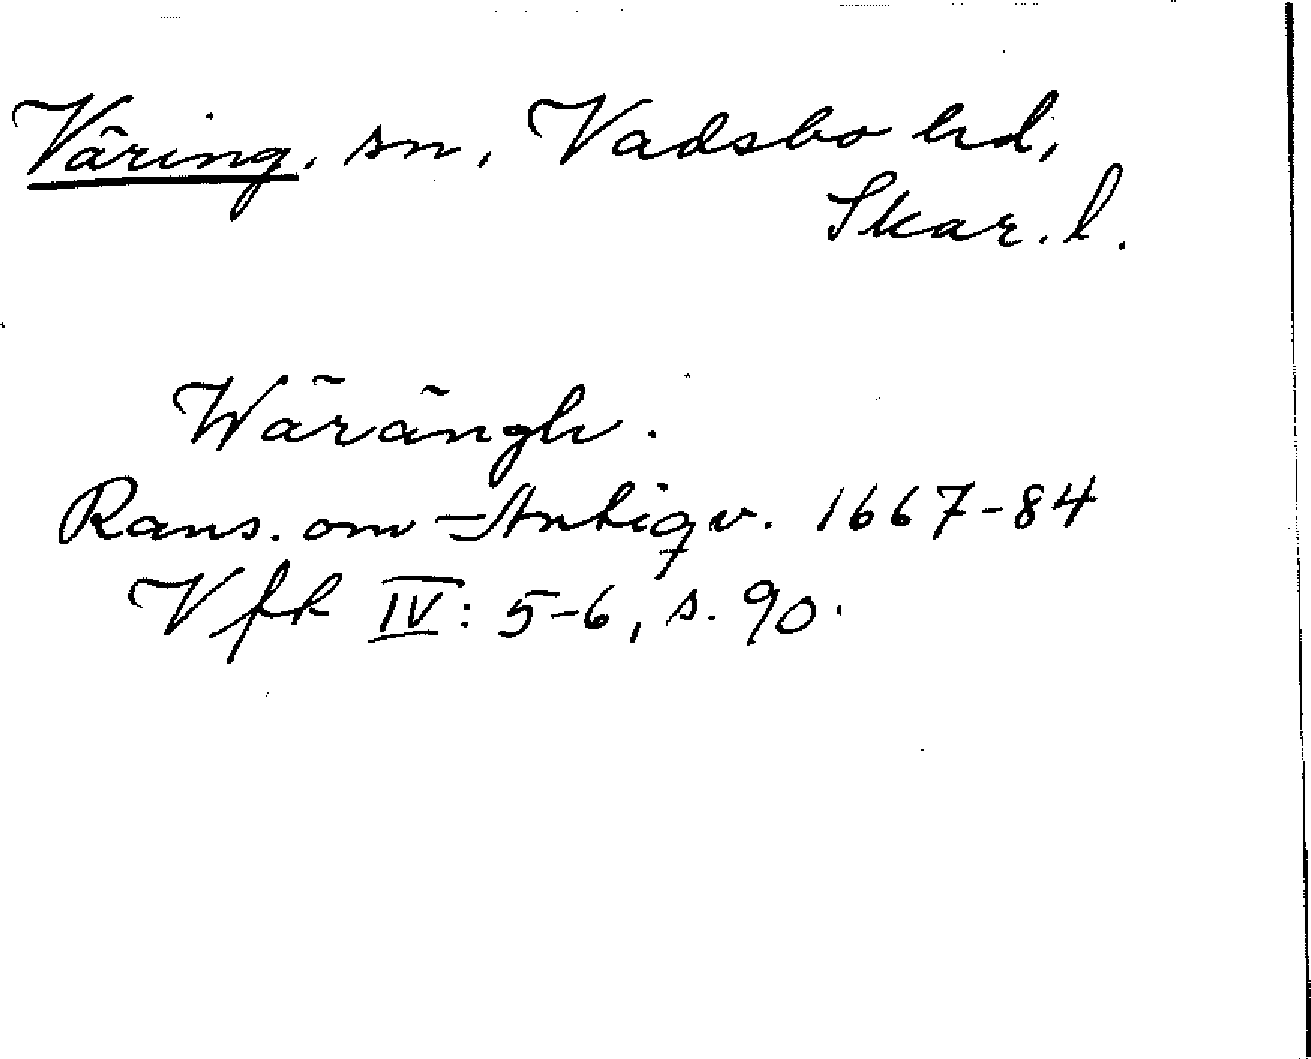 Väring. sn, Vadsbo hd,
Skar. l.
Wärängh.
Rans. om Antiqv. 1667-84
Vfk IV: 5-6, s. 90.